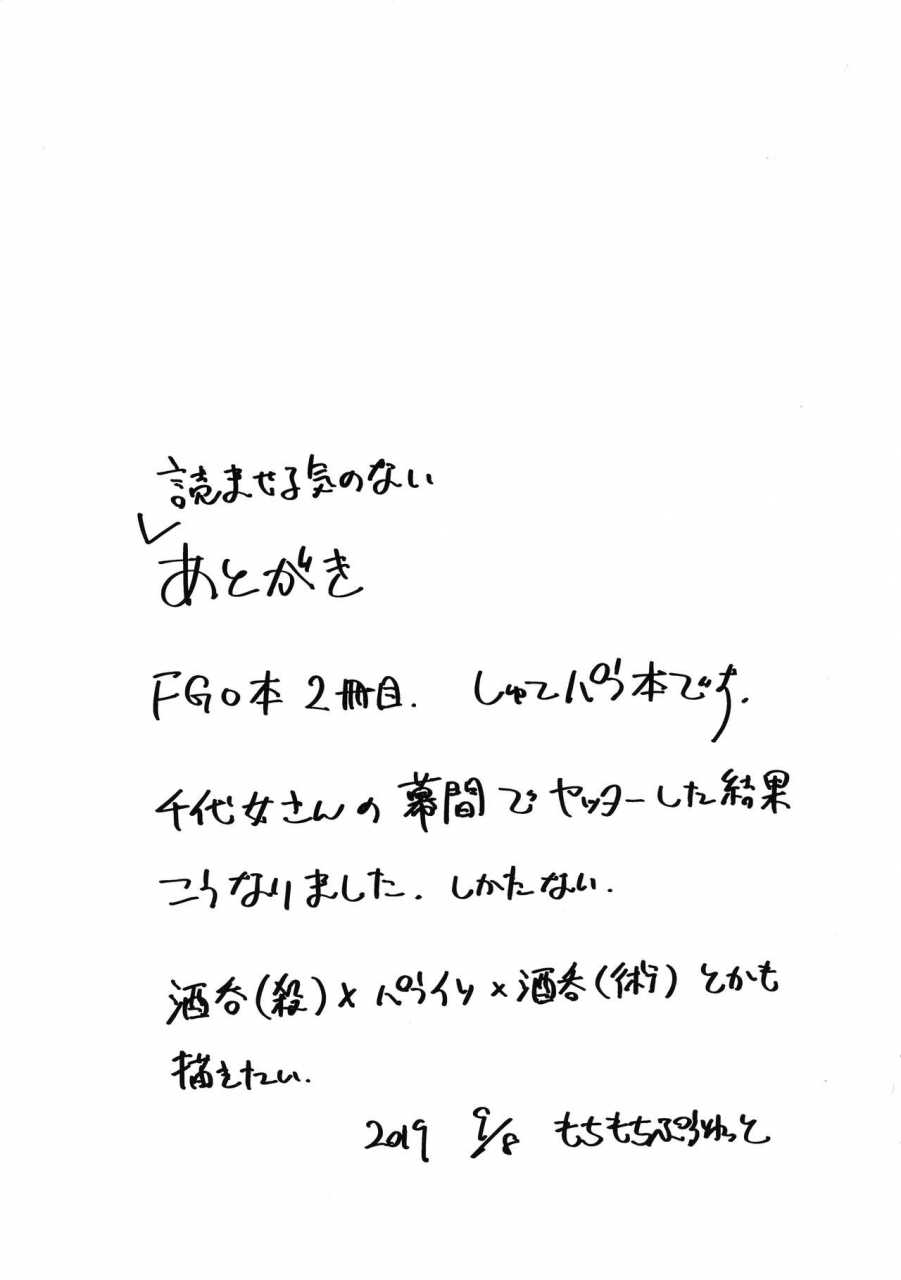 読ませる気のない
あとがき
FGO本 2冊目. しゅてパラ本です.
千代女さんの幕間でヤッターした結果
こうなりました. しかたない.
酒呑(殺)×パライソ×酒呑(術)とかも
描きたい.
2019 9/8 もちもちぷぅねっと